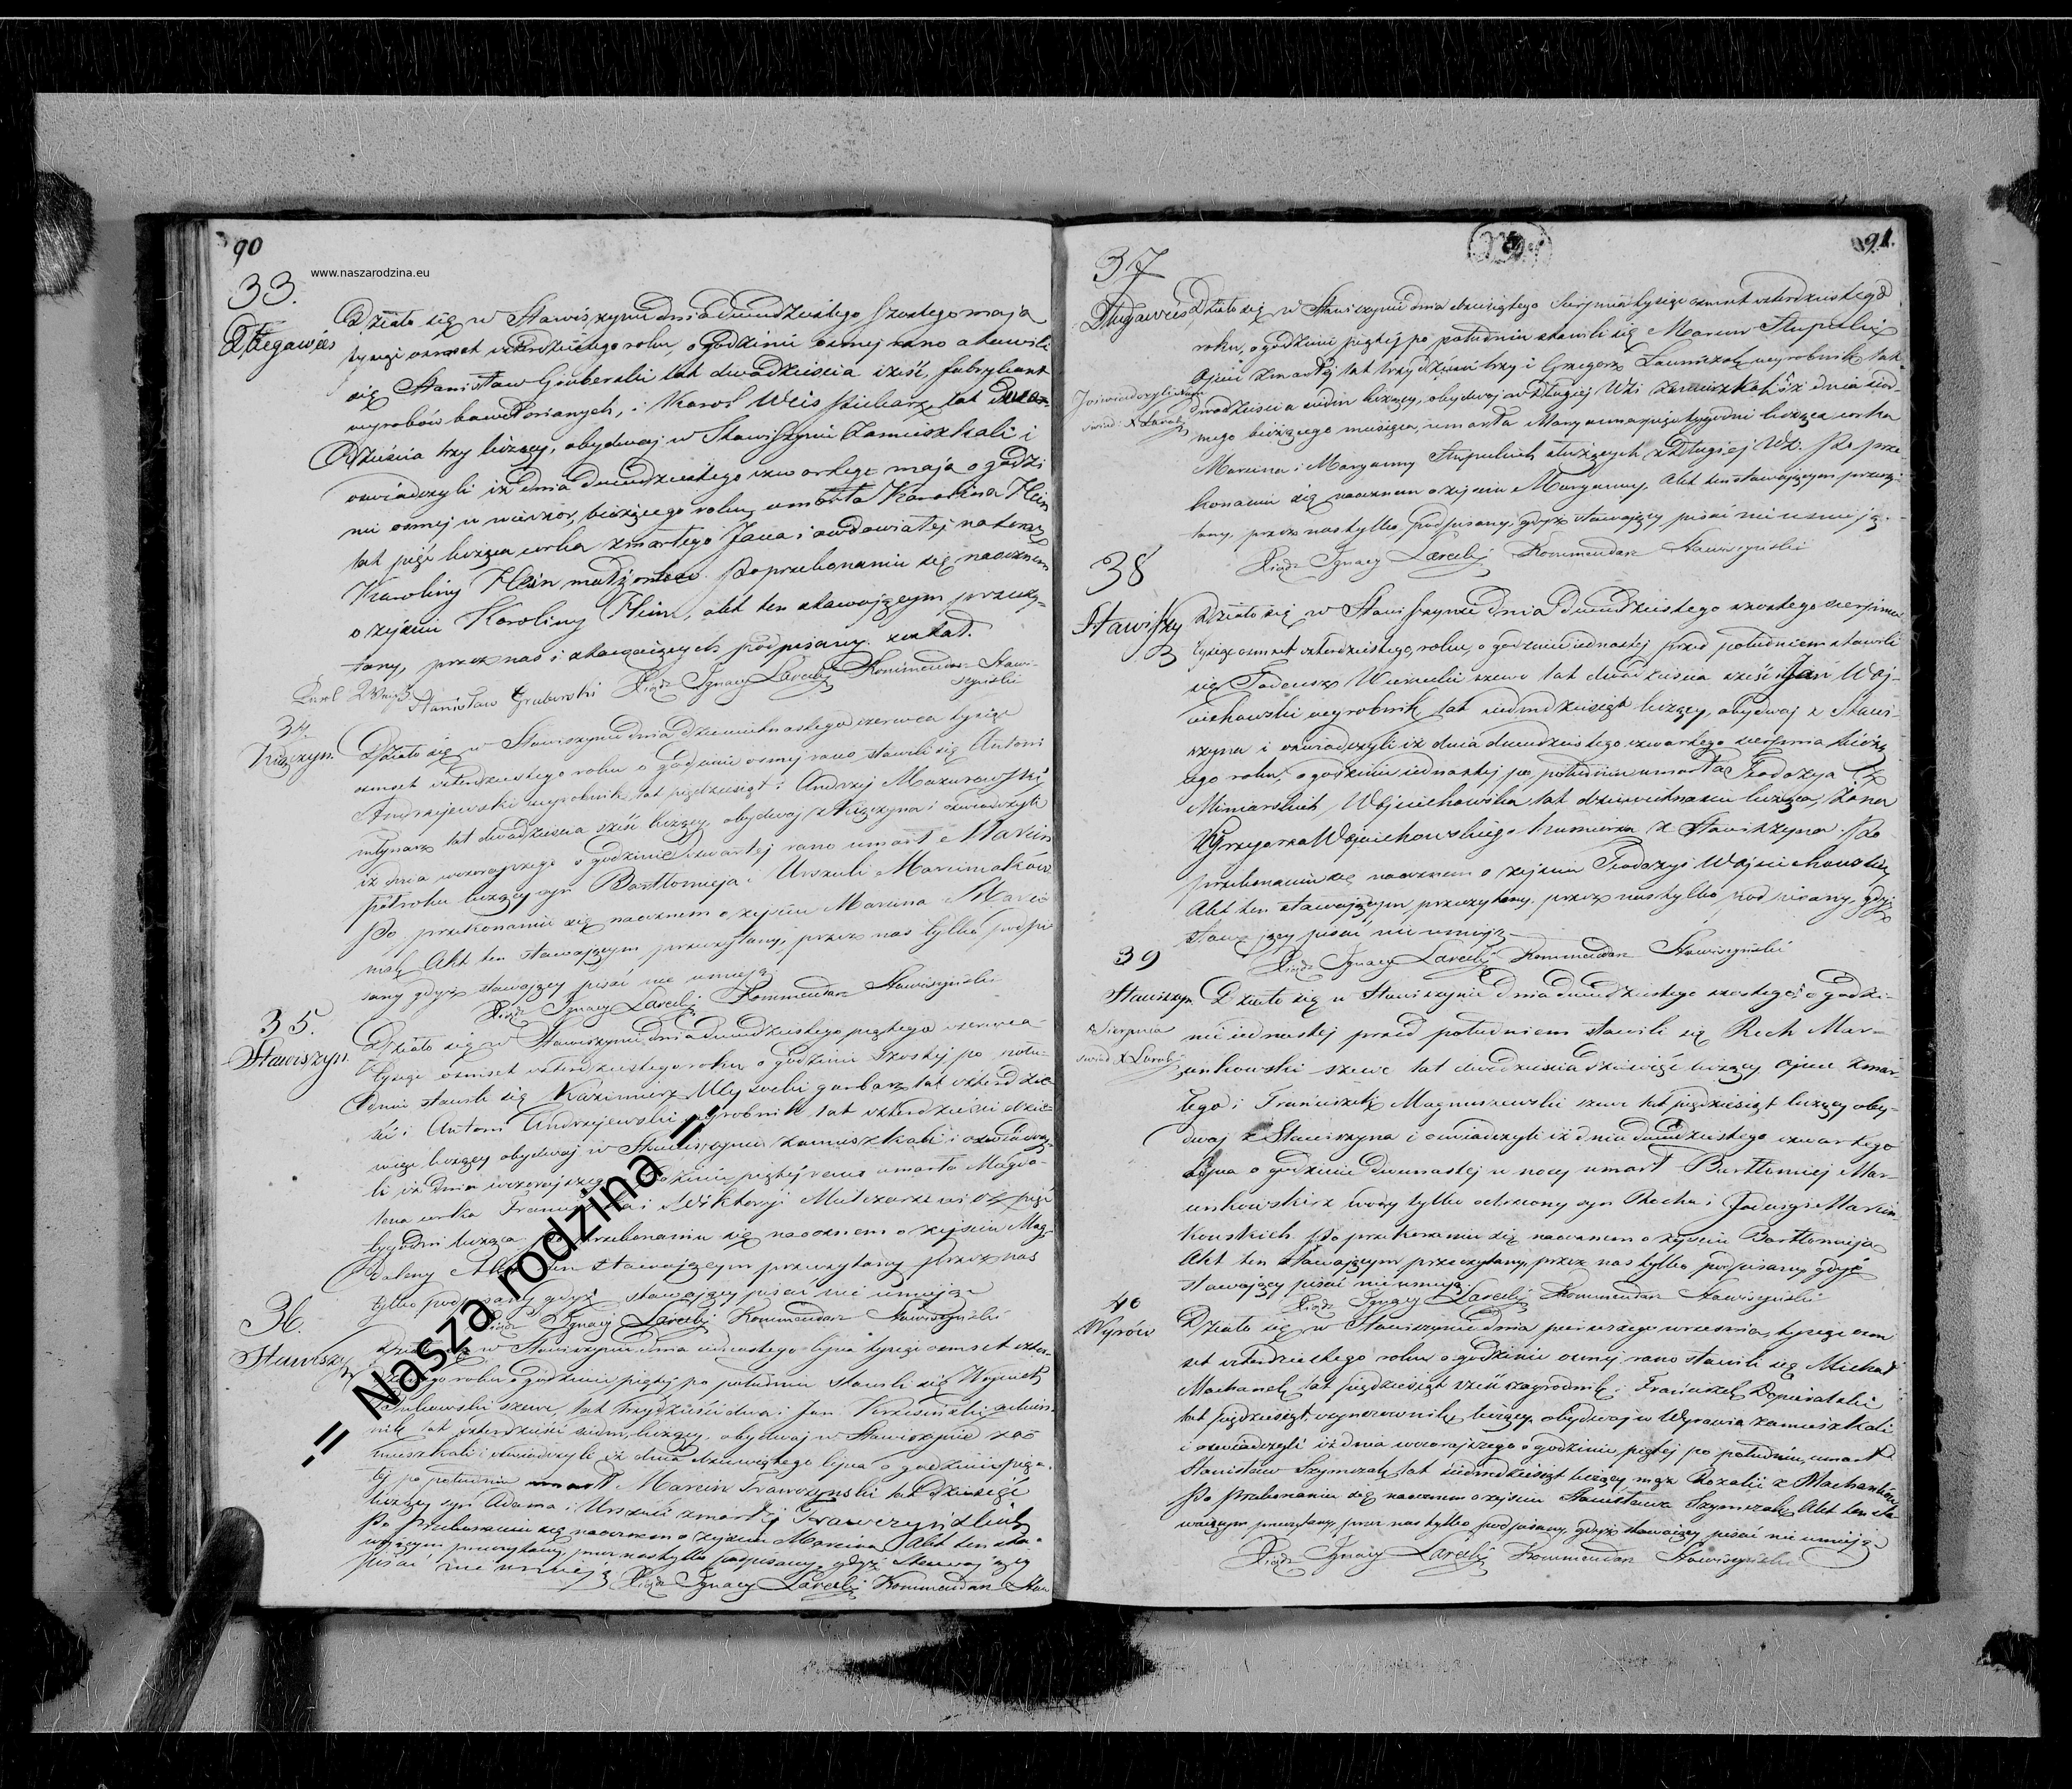 90
www.naszarodzina.eu
33.
Długawieś
Działo się w Stawiszynie dnia dwudziestego szóstego maja
tysiąc osmset czterdziestego roku, o godzinie osmej rano stawili
się Stanisław Gruberski lat dwadzieścia sześć, fabrykant
wyrobów bawełnianych, i Karol Weis piekarz lat dwa-
dzieścia trzy liczący, obydwaj w Stawiszynie zamieszkali i
oświadczyli iż dnia dwudziestego czwartego maja o godzi
nie osmej w wieczor, bieżącego roku, umarła Karolina Hein
lat pięć licząca córka zmarłego Jana i owdowiałej na teraz
Karoliny Hein małżonków. Po przekonaniu się naocznem
o zejściu Karoliny Hein, akt ten stawającym przeczy-
tany, przez nas i stawaiących podpisany został.
Stanisław Gruberski Xiądz Ignacy Kommendarz Stawi-
szyński
34
Działo się w Stawiszynie dnia dziewiętnastego czerwca tysiąc
osmset czterdziestego roku o godzinie osmej rano stawili się Antoni
Andrzejewski wyrobnik lat pięćdziesiąt i Andrzej Mazurowski
młynarz lat dwadzieścia sześć liczący, obydwaj i oświadczyli
iż dnia wczorajszego o godzinie czwartej rano umarł Marcin
półroku liczący syn Bartłomieja i Urszuli
Po przekonaniu się naocznem o zejściu Marcina
Akt ten stawającym przeczytany, przez nas tylko podpi
sany gdyż stawający pisać nie umieją
Xiądz Ignacy Kommendarz Stawiszyński
35.
Stawiszyn.
Działo się w Stawiszynie dnia dwudziestego piątego czerwca
tysiąc osmset czterdziestego roku o godzinie szóstej po połu-
dniu stawili się Kazimierz garbarz lat czterdzie
ści i Antoni Andrzejewski wyrobnik lat czterdzieści dzie-
więć liczący obydwaj w Stawiszynie zamieszkali i oświadczy-
li iż dnia wczorajszego o godzinie piątej rano umarła Magda-
lena córka Franciszka i Wiktoryi pięć
tygodni licząca. Po przekonaniu się naocznem o zejściu Mag-
daleny Akt ten stawającym przeczytany przez nas
tylko podpisany gdyż stawający pisać nie umieją
Xiądz Ignacy Kommendarz Stawiszyński
36.
Stawiszyn
Działo się w Stawiszynie dnia lipca tysiąc osmset czter-
dziestego roku o godzinie piątej po południu stawili się Wojciech
szewc lat trzydzieści dwa i Jan
lat czterdzieści siedm, liczący, obydwaj w Stawiszynie za
mieszkali i oświadczyli iż dnia dziewiątego lipca o godzinie pią
tej po południu umarł Marcin
liczący syn Adama i Urszuli zmarłej
Po przekonaniu się naocznem o zejściu Marcina Akt ten sta-
wającym przeczytany, przez nas tylko podpisany, gdyż stawaiący
pisać nie umieją Xiądz Ignacy Kommendarz Staw
= Nasza rodzina =
91.
37
Długawieś
Działo się w Stawiszynie dnia dziesiątego Sierpnia tysiąc osmset czterdziestego
roku, o godzinie piątej po południu stawili się Marcin Słupecki
Ojciec zmarłej lat trzydzieści trzy i Grzegorz wyrobnik lat
dwadzieścia siedm liczący, obydwaj w Długiej Wsi zamieszkali, iż dnia siod-
mego bieżącego miesiąca, umarła Maryanna tygodni licząca córka
Marcina i Maryanny Słupeckich służących z Długiej Wsi. Po prze-
konaniu się naocznem o zejściu Maryanny, Akt ten stawającym przeczy-
tany, przez nas tylko podpisany, gdyż stawający pisać nie umieją.
Xiądz Ignacy Kommendarz Stawiszyński
38
Stawiszyn
Działo się w Stawiszynie dnia dwudziestego szóstego sierpnia
tysiąc osmset czterdziestego, roku, o godzinie iednastej przed południem stawili
się Tadeusz szewc lat dwadzieścia sześć i Jan Woj-
ciechowski wyrobnik lat siedmdziesiąt liczący, obydwaj z Stawi-
szyna i oświadczyli iż dnia dwudziestego czwartego sierpnia bieżą
cego roku, o godzinie iednastej po południu umarła Teodozya z
Wojciechowska lat dziewiętnaście licząca, żona
Grzegorza Wojciechowskiego z Stawiszyna. Po
przekonaniu się naocznem o zejściu Teodozyi Wojciechowskiej
Akt ten stawającym przeczytany, przez nas tylko podpisany, gdyż
stawający pisać nie umieją
Xiądz Ignacy Kommendarz Stawiszyński
39
Stawiszyn
Działo się w Stawiszynie dnia dwudziestego szóstego o godzi-
nie iednastej przed południem stawili się Roch Mar-
cinkowski szewc lat dwadzieścia dziewięć liczący ojciec zmar-
łego i Franciszek Magnuszewski szewc lat pięćdziesiąt liczący oby-
dwaj z Stawiszyna i oświadczyli iż dnia dwudziestego czwartego
o godzinie dwunastej w nocy umarł Bartłomiej Mar-
cinkowski z wody tylko ochrzcony syn Rocha i Jadwigi Marcin-
kowskich. Po przekonaniu się naocznem o zejściu Bartłomieja
Akt ten stawającym przeczytany, przez nas tylko podpisany gdyż
stawający pisać nie umieją.
Xiądz Ignacy Kommendarz Stawiszyński
40
Wyrów
Działo się w Stawiszynie dnia pierwszego września, tysiąc osm
set czterdziestego roku o godzinie osmej rano stawili się Michał
Machanek lat pięćdziesiąt sześć zagrodnik i Franciszek
lat pięćdziesiąt liczący, obydwaj w Wyrowie zamieszkali
i oświadczyli iż dnia wczorajszego o godzinie piątej po południu, umarł
Stanisław Szymczak lat siedmdziesiąt liczący mąż Rozalii z Machanków
Po przekonaniu się naocznem o zejściu Stanisława Szymczaka Akt ten sta
waiącym przeczytany, przez nas tylko podpisany, gdyż stawaiący pisać nie umieją
Xiądz Ignacy Kommendarz Stawiszyński